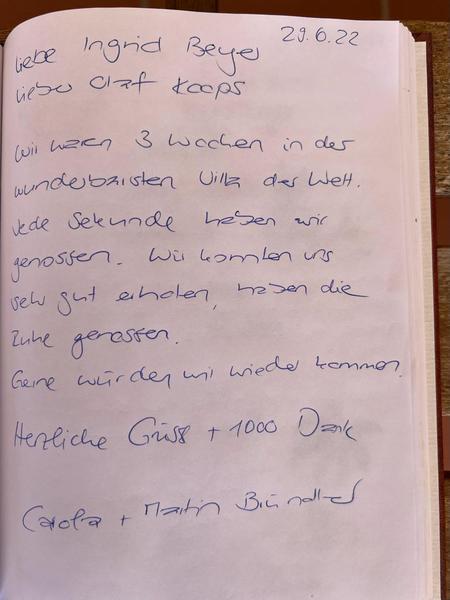 29.6.22
Liebe Ingrid Beyer
Lieber Olaf Koops
Wir waren 3 Wochen in der
wunderbarsten Villa der Welt.
Jede Sekunde haben wir
genossen. Wir konnten uns
sehr gut erholen, haben die
Ruhe genossen.
Gerne würden wir wieder kommen.
Herzliche Grüss + 1000 Dank
Carola + Martin